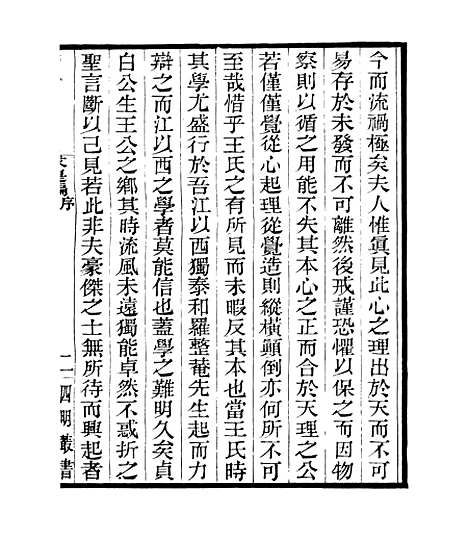 今而流禍極矣夫人惟眞見此心之理出於天而不可
易存於未發而不可離然後戒謹恐懼以保之而因物
察則以循之用能不失其本心之正而合於天理之公
若僅僅覺從心起理從覺造則縱橫顛倒亦何所不可
至哉惜乎王氏之有所見而未暇反其本也當王氏時
其學尤盛行於吾江以西獨泰和羅整菴先生起而力
辯之而江以西之學者莫能信也蓋學之難明久矣貞
白公生王公之鄉其時流風未遠獨能卓然不惑折之
聖言斷以己見若此非夫豪傑之士無所待而興起者
序 二 四明叢書